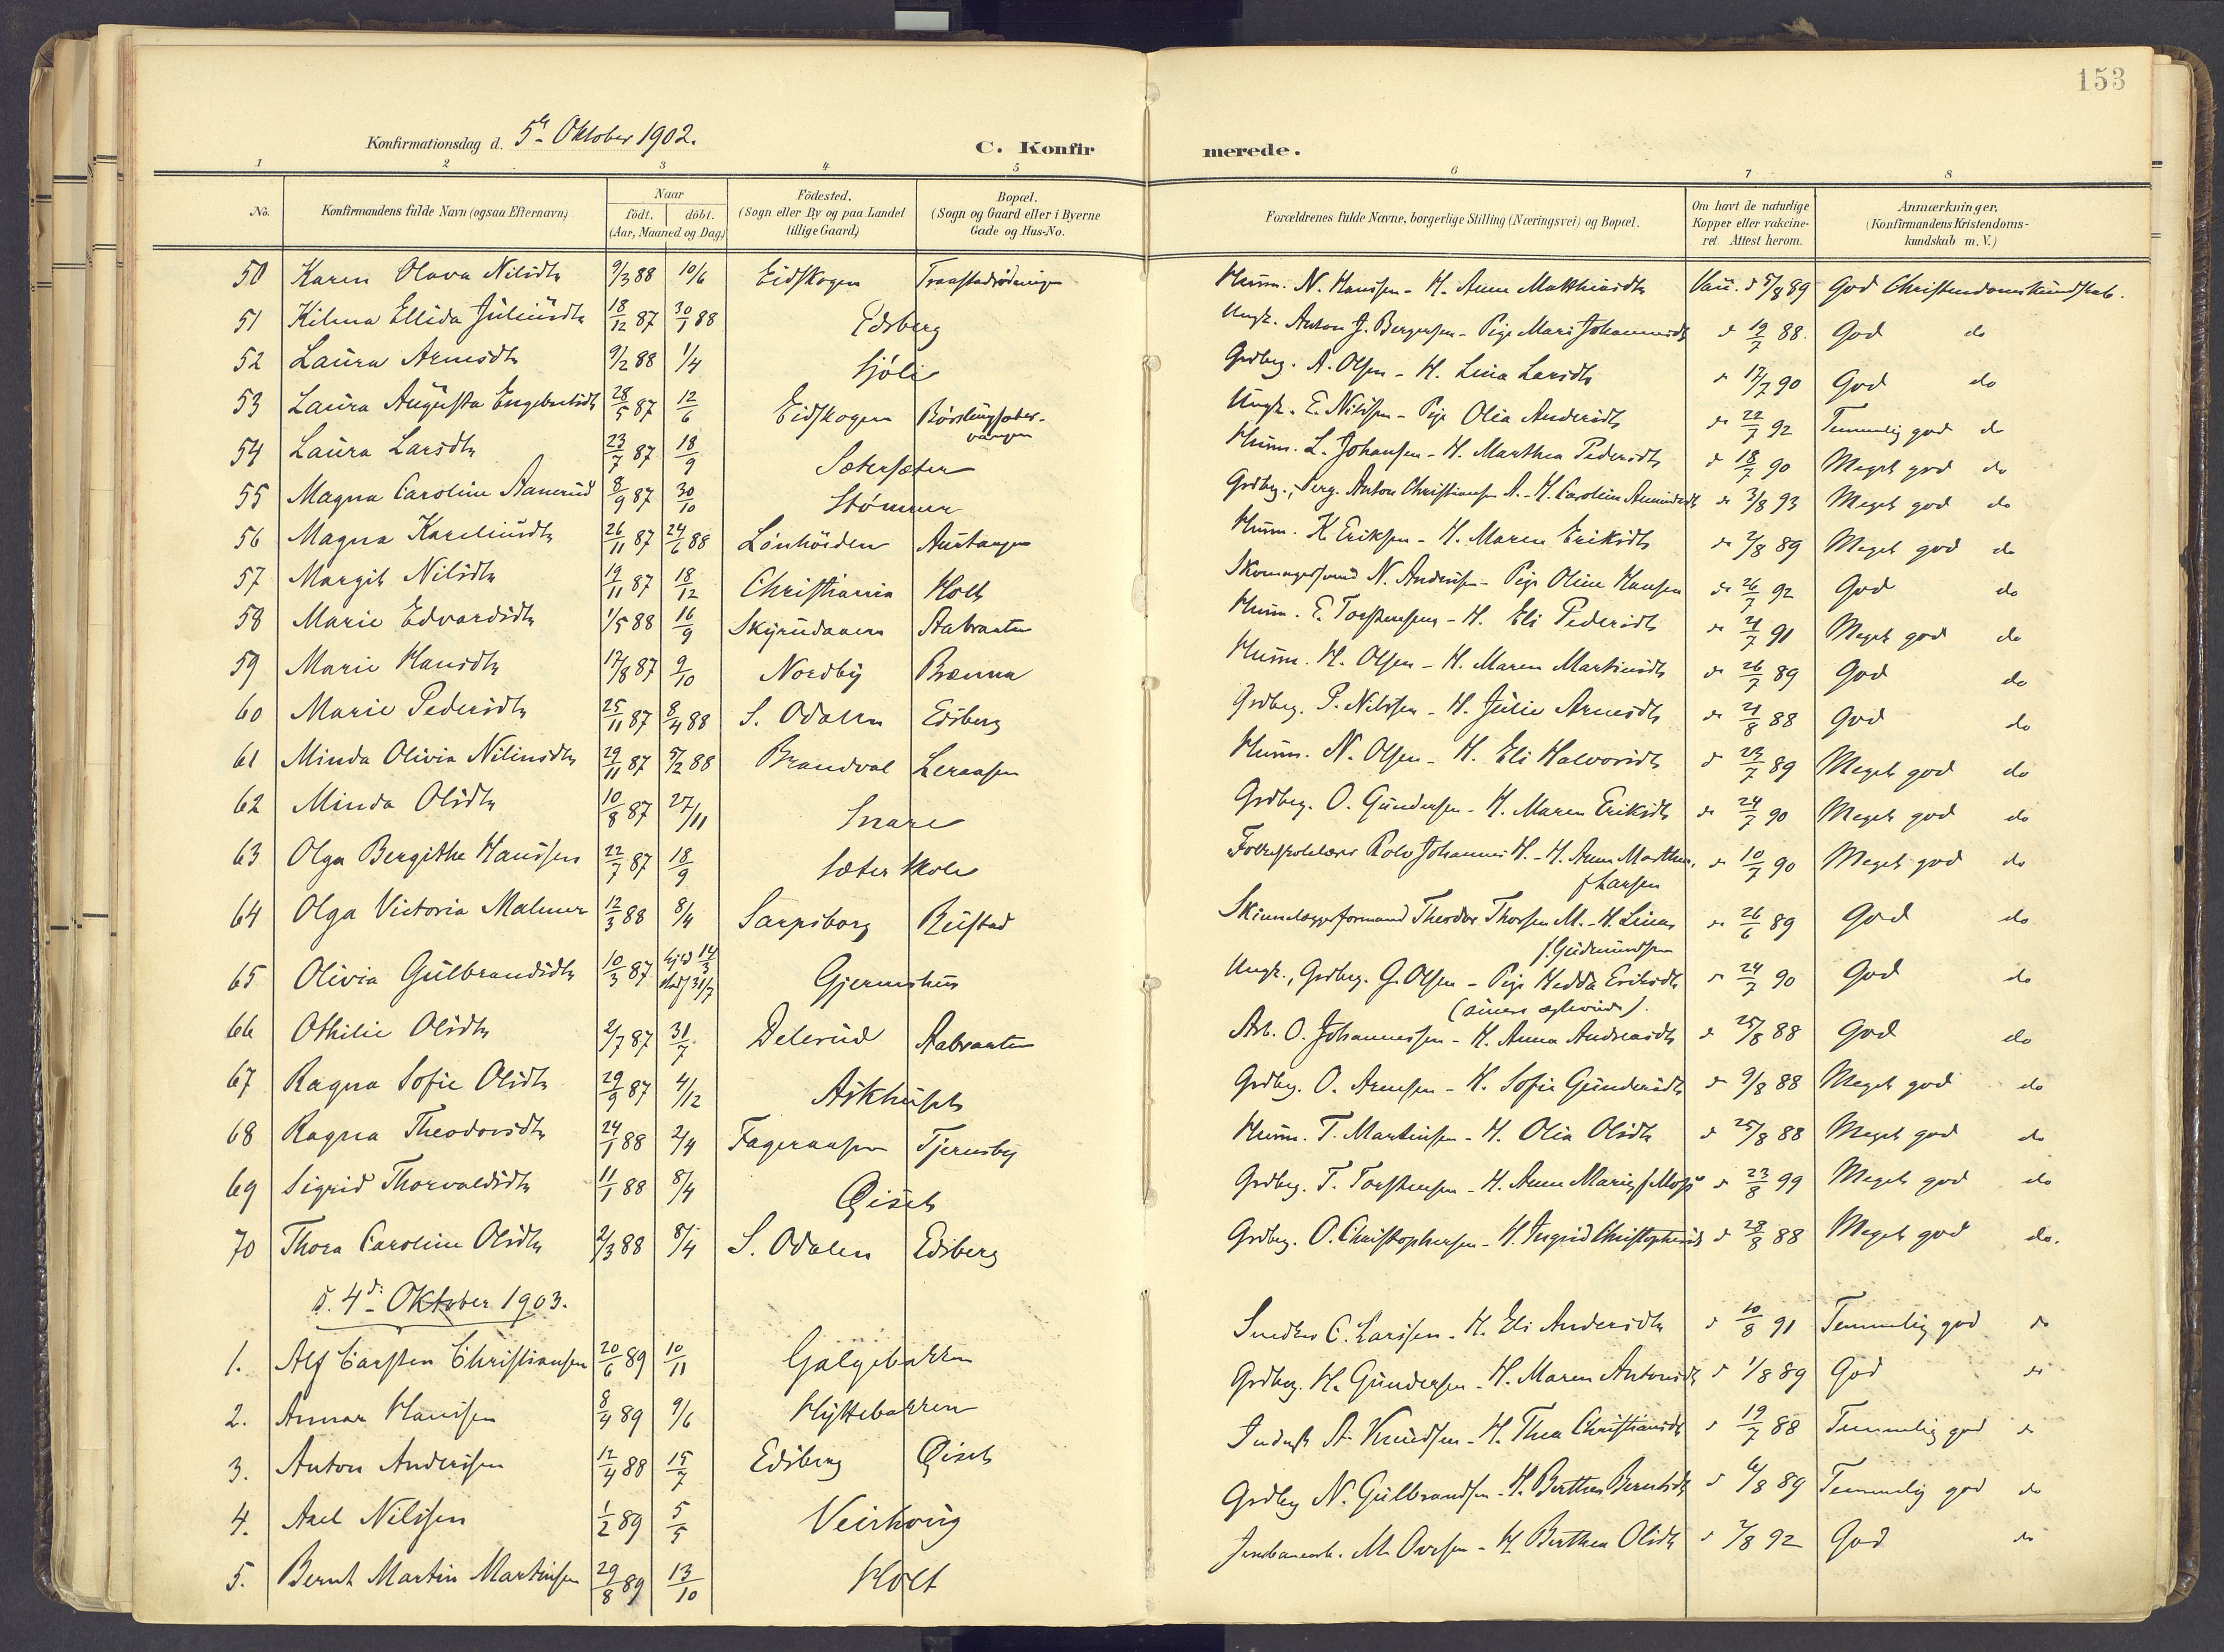 153
Konfirmationsdag d. 5te Oktober 1902.
C. Konfirmerede.
1 2 3 4 5 6 7 8
No. Konfirmandens fulde Navn (ogsaa Efternavn) Naar födt. döbt. (Aar, Maaned og Dag) Födested. (Sogn eller By og paa Landet tillige Gaard) Bopæl. (Sogn og Gaard eller i Byerne Gade og Hus-No. Forældrenes fulde Navne, borgerlige Stilling (Næringsvei) og Bopæl. Om havt de naturlige Kopper eller vakcineret. Attest herom. Anmærkninger, (Konfirmandens Kristendomskundskab m. V.)
50 Karen Olava Nilsdtr 9/3 88 10/6 Eidskogen Husm. N. Hanssen - H. Anne Matthiasdtr Vacc. d 5/8 89 God Christendomskundskab.
51 Ellida Juliusdtr 18/12 87 30/1 88 Edsberg Ungk. Anton J. Bergersen - Pige Mari Johannesdtr d 19/7 88. God do
52 Laura Arnesdtr 9/2 88 1/4 Sjøli Grdbrg. A. Olsen - H. Lina Larsdtr d 17/7 90 God do
53 Laura Augusta Engebretsdtr 28/5 87 12/6 Eidskogen Ungk. E. Nilssen - Pige Olea Andersdtr d 22/7 92 Temmelig god do
54 Laura Larsdtr 23/7 87 18/9 Sætersæter Husm. L. Johansen - H. Marthea Pedersdtr d 18/7 90 Meget god do
55 Magna Caroline Aanerud 8/9 87 30/10 Stömner Grdbrg., Serg. Anton Christiansen A. - H. Caroline d 3/8 93 Meget god do
56 Magna Kareliusdtr 26/11 87 24/6 88 Lönhöiden Austangen Husm. K. Eriksen - H. Maren Eriksdtr d 2/8 89 Meget god do
57 Margit Nilsdtr 19/11 87 18/12 Christiania Holt Skomagersvend N. Andersen - Pige Oline Hansen d 26/7 92 God do
58 Marie Edvardsdtr 1/5 88 16/9 Skyrudaaen Aabraaten Husm. E. Torstensen - H. Eli Pedersdtr d 21/7 91 Meget god do
59 Marie Hansdtr 17/8 87 9/10 Nordby Brænna Husm. H. Olsen - H. Maren Martinsdtr d 26/7 89 God do
60 Marie Pedersdtr 25/11 87 8/4 88 S. Odalen Edsberg Grdbrg. P. Nilssen - H. Julie Arnesdtr d 21/8 88 God do
61 Minda Olivia Nilsdtr 29/11 87 5/2 88 Brandval Leraasen Husm. N. Olsen - H. Eli Halvorsdtr d 23/7 89 Meget god do
62 Minda Olsdtr 10/8 87 27/11 Snare Grdbrg. O. Gundersen - H. Maren Eriksdtr d 24/7 90 Meget god do
63 Olga Bergithe Hanssen 22/7 87 18/9 Sæter Skole Folkeskolelærer Rolv Johannes H. - H. Anne Marthea f. Larsen d 10/7 90 Meget god do
64 Olga Victoria Malmer 12/3 88 8/4 Sarpsborg Rustad Skinnelæggerformand Theodor Thorsen M. - H. Lina f. Gudmundsen d 26/6 89 God do
65 Olivia Gulbrandsdtr 10/3 87 hjd 14/3 stadf 31/7 Gjermshus Ungk., Grdbrg. G. Olsen - Pige Hedda Eriksdtr (senere ægteviede). d 24/7 90 God do
66 Othilie Olsdtr 2/7 87 31/7 Delerud Aabraaten Arb. O. Johannessen - H. Anna Andreasdtr d 25/8 88 God do
67 Ragna Sofie Olsdtr 29/9 87 4/12 Askhuset Grdbrg. O. Arnesen - H. Sofie Gundersdtr d 9/8 88 Meget god do
68 Ragna Theodorsdtr 24/1 88 2/4 Fageraasen Tjernsby Husm. T. Martinsen - H. Olia Olsdtr d 25/8 88 Meget god do
69 Sigrid Thorvaldsdtr 11/1 88 8/4 Qiset Grdbrg. T. Torstensen - H. Anne Marie f. Moss d 23/8 99 Meget god do
70 Thora Caroline Olsdtr 2/3 88 8/4 S. Odalen Edsberg Grdbrg. O. Christophersen - H. Ingrid Christophersdtr d 28/8 88 Meget god do.
d. 4de Oktober 1903.
1. Alf Carsten Christiansen 20/6 89 10/11 Galgebakken C. Larssen - H. Eli Andersdtr d 10/8 91 Temmelig god do
2. Annar Hanssen 8/4 89 9/6 Hyttebakken Grdbrg. H. Gundersen - H. Maren Antonsdtr d 1/8 89 God do
3. Anton Anderssen 12/4 88 15/7 Edsberg Qiset Inderst A. Knudsen - H. Thea Christiansdtr d 19/7 88 Temmelig god do
4. Axel Nilssen 1/2 89 5/5 Grdbrg N. Gulbrandsen - H. Berthea Berntsdtr d 6/8 89 Temmelig god do
5. Bernt Martin Martinsen 29/8 89 13/10 Holt Jernbanearb. M. Oversen - H. Berthea Olsdtr d 2/8 92 God do